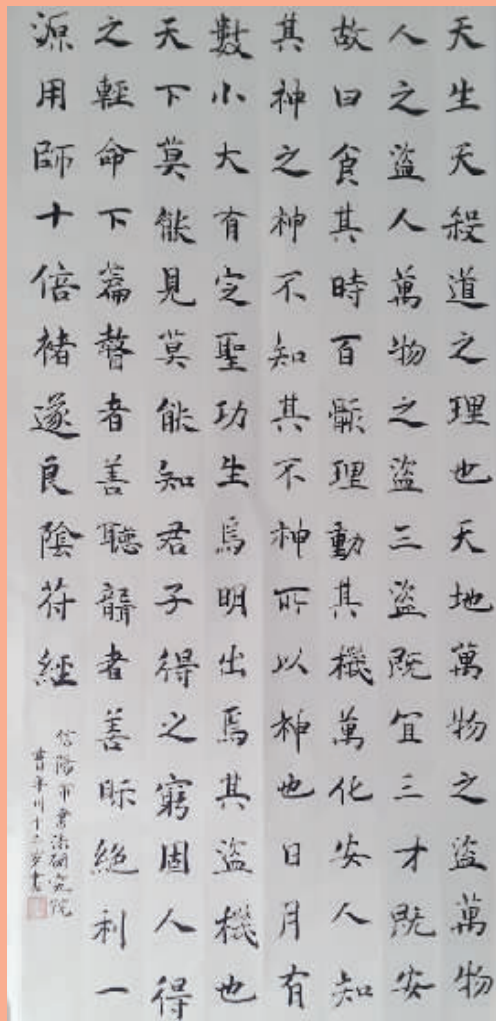 天生天殺道之理也天地萬物之盜萬物
人之盜人萬物之盜三盜既宜三才既安
故曰食其時百骸理動其機萬化安人知
其神之神不知其不神所以神也日月有
數小大有定聖功生焉明出焉其盜機也
天下莫能見莫能知君子得之窮固人得
之輕命下篇瞽者善聽聾者善眎絕利一
源用師十倍褚遂良陰符經
信陽市書法研究院
曹年川十三岁書